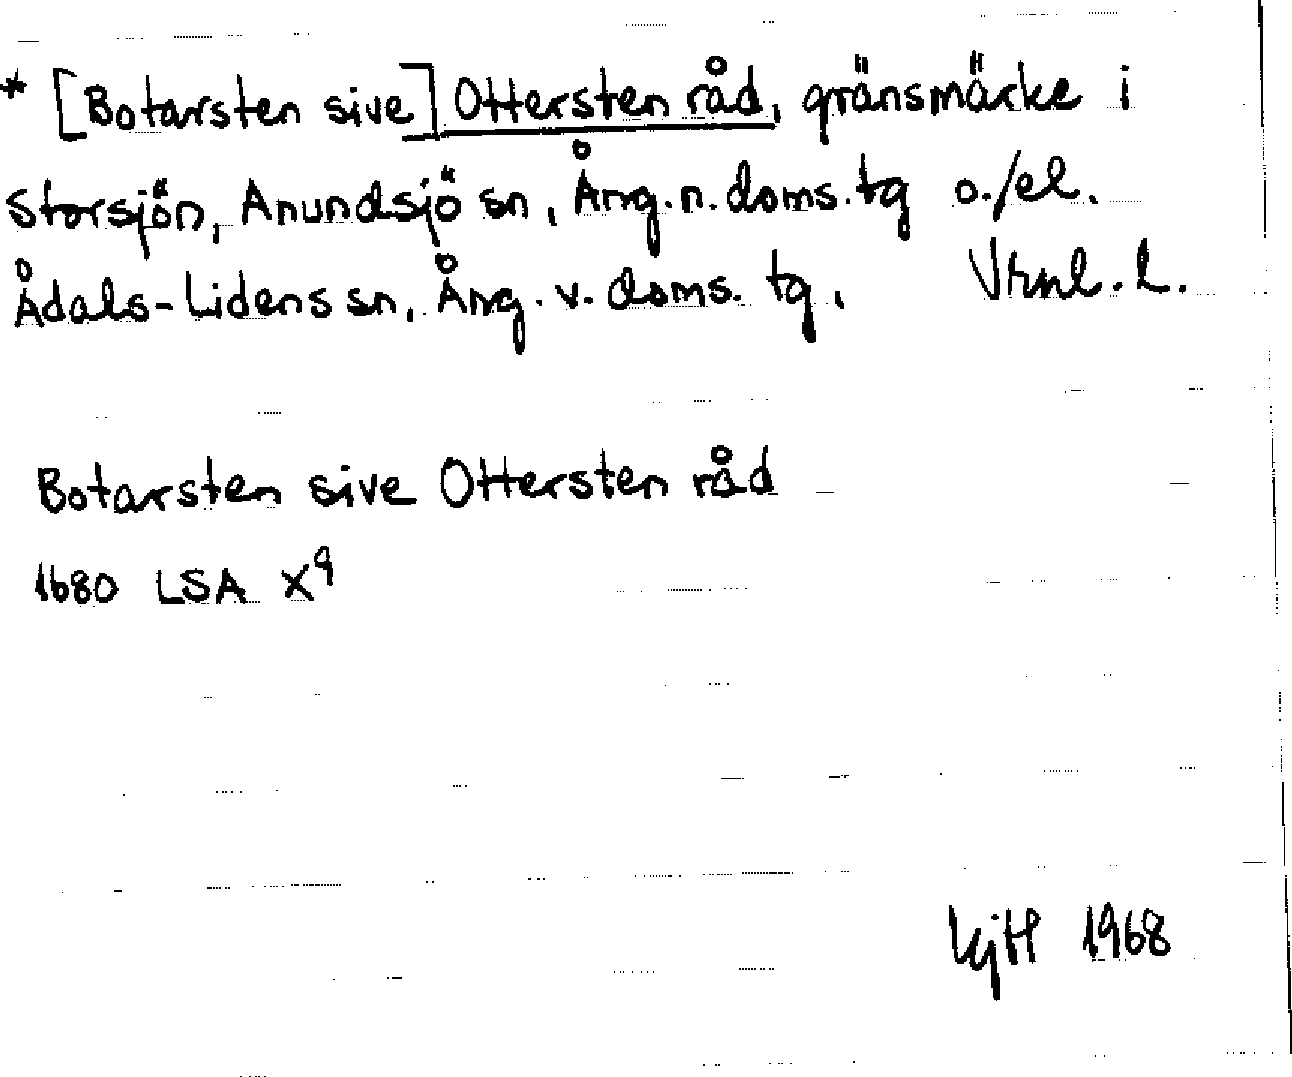 * [Botarsten sive] Ottersten råd, gränsmärke i
Storsjön, Anundsjö sn, Ång. n. doms. tg o./el.
Ådals-Lidens sn, Ång. v. doms. tg, Vtnl. l.
Botarsten sive Ottersten råd
1680 LSA X9
1968